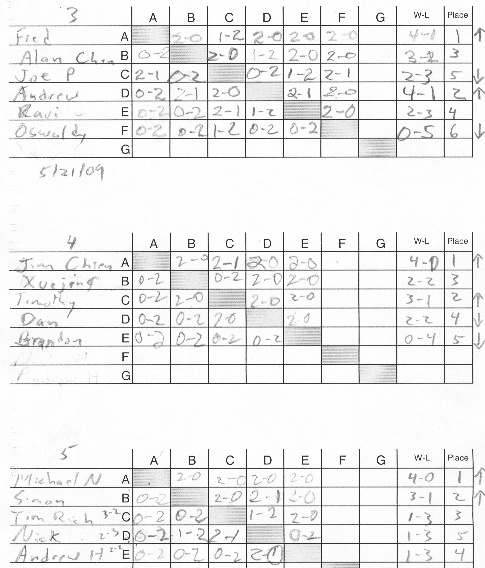 3 A B C D E F G W-L Place
Fred A 2-0 1-2 2-0 2-0 2-0 4-1 1 ↑
Alan Chen B 0-2 2-0 1-2 2-0 2-0 3-2 3
Joe P C 2-1 0-2 0-2 1-2 2-1 2-3 5 ↓
Andrew D 0-2 2-1 2-0 2-1 2-0 4-1 2 ↑
Ravi E 0-2 0-2 2-1 1-2 2-0 2-3 4
Oswaldy F 0-2 0-2 1-2 0-2 0-2 0-5 6 ↓
G
5/21/09
4 A B C D E F G W-L Place
Jim Chien A 2-0 2-1 2-0 2-0 4-0 1 ↑
Xuejing B 0-2 0-2 2-0 2-0 2-2 3
Timothy C 0-2 2-0 2-0 2-0 3-1 2 ↑
Dan D 0-2 0-2 2-0 2-0 2-2 4 ↓
Brandon E 0-2 0-2 0-2 0-2 0-4 5 ↓
F
G
5 A B C D E F G W-L Place
Michael N A 2-0 2-0 2-0 2-0 4-0 1 ↑
Simon B 0-2 2-0 2-1 2-0 3-1 2 ↑
Tim Rich 3-2 C 0-2 0-2 1-2 2-0 1-3 3
Nick 2-3 D 0-2 1-2 2-1 0-2 1-3 5
Andrew H 2-2 E 0-2 0-2 0-2 2-0 1-3 4